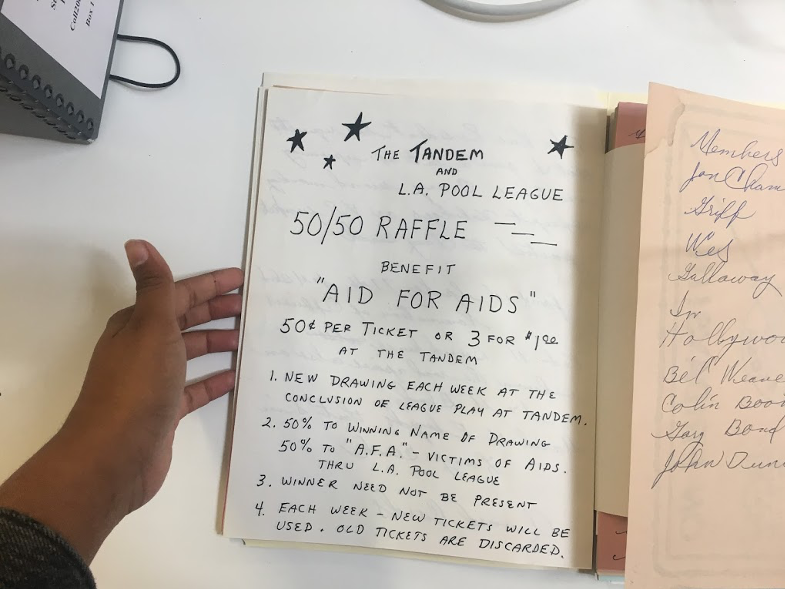 Coll20
Box 1
THE TANDEM
AND
L.A. POOL LEAGUE
50/50 RAFFLE
BENEFIT
"AID FOR AIDS"
50¢ PER TICKET OR 3 FOR $1.00
AT THE TANDEM
1. NEW DRAWING EACH WEEK AT THE
CONCLUSION OF LEAGUE PLAY AT TANDEM.
2. 50% TO WINNING NAME OF DRAWING
50% TO "A.F.A." - VICTIMS OF AIDS.
THRU L.A. POOL LEAGUE
3. WINNER NEED NOT BE PRESENT
4. EACH WEEK - NEW TICKETS WILL BE
USED. OLD TICKETS ARE DISCARDED.
Members
Jon Cham
Griff
Wes
Gallaway
Hollywoo
Bel Weave
Colin Boon
Gary Bond
John Dunn